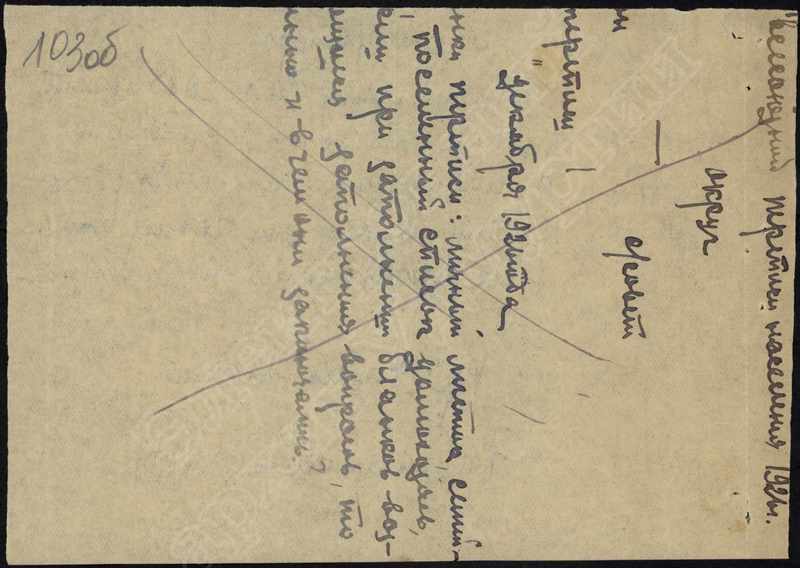 103об
Всесоюзный переписи населения 1926г.
округ
с/совет
он
переписи
" декабря 1926 года
нки переписи: личный листок, семей-
поселенный список домохозяев,
кий при заполнении бланков воз-
ащался заполнения вопросов, то
енно и в чем они заключались?